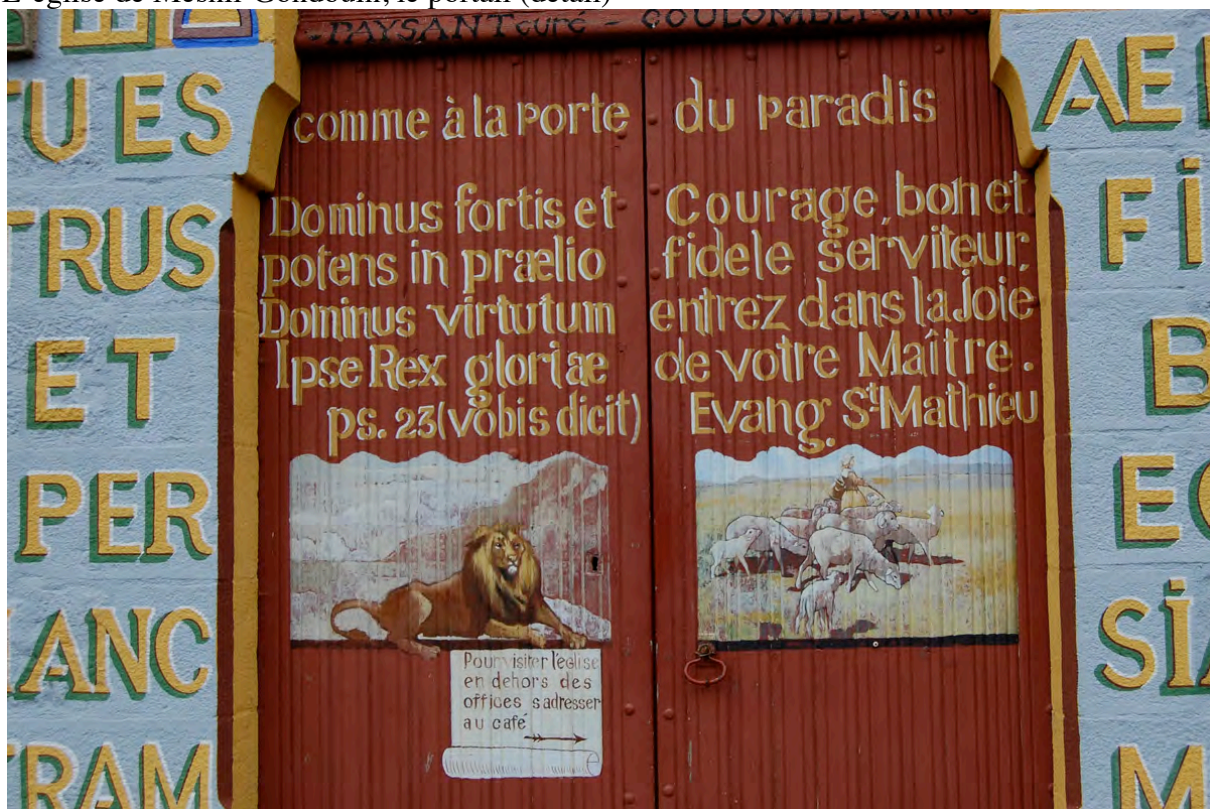 L'église de Mesnil-Gondouin, le portail (détail)
-PAYSANT curé - COULOMBE
comme à la porte du paradis
Dominus fortis et
potens in prælio
Dominus virtutum
Ipse Rex gloriae
ps. 23 (vobis dicit)
Courage, bon et
fidele serviteur,
entrez dans la Joie
de votre Maître.
Evang. St Mathieu
Pour visiter l'église
en dehors des
offices s'adresser
au café
TU ES
TRUS
ET
PER
ANC
TRAM
AE
Fi
B
EC
Si
M